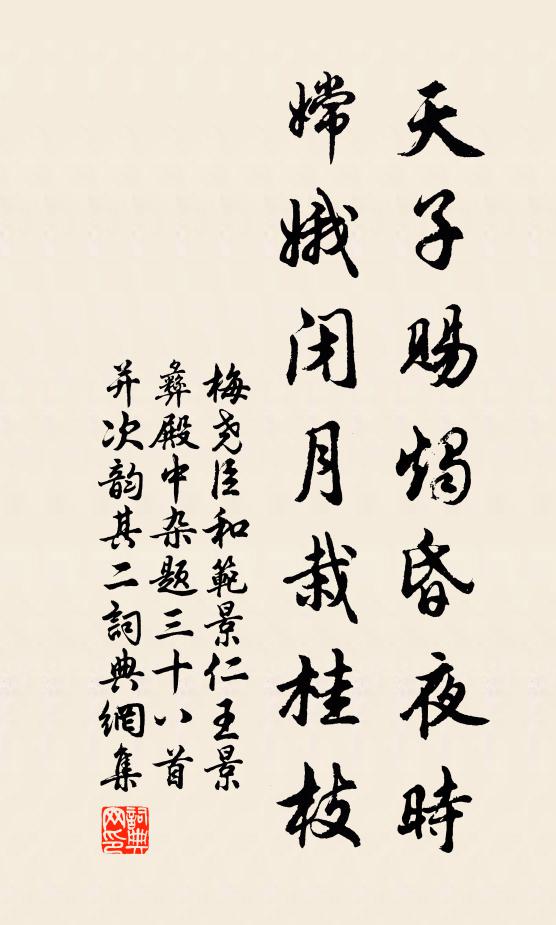 天子賜燭昏夜時
嫦娥閉月栽桂枝
梅尧臣和範景仁王景
彝殿中杂题三十八首
并次韵其二詞典網集
詞典網印